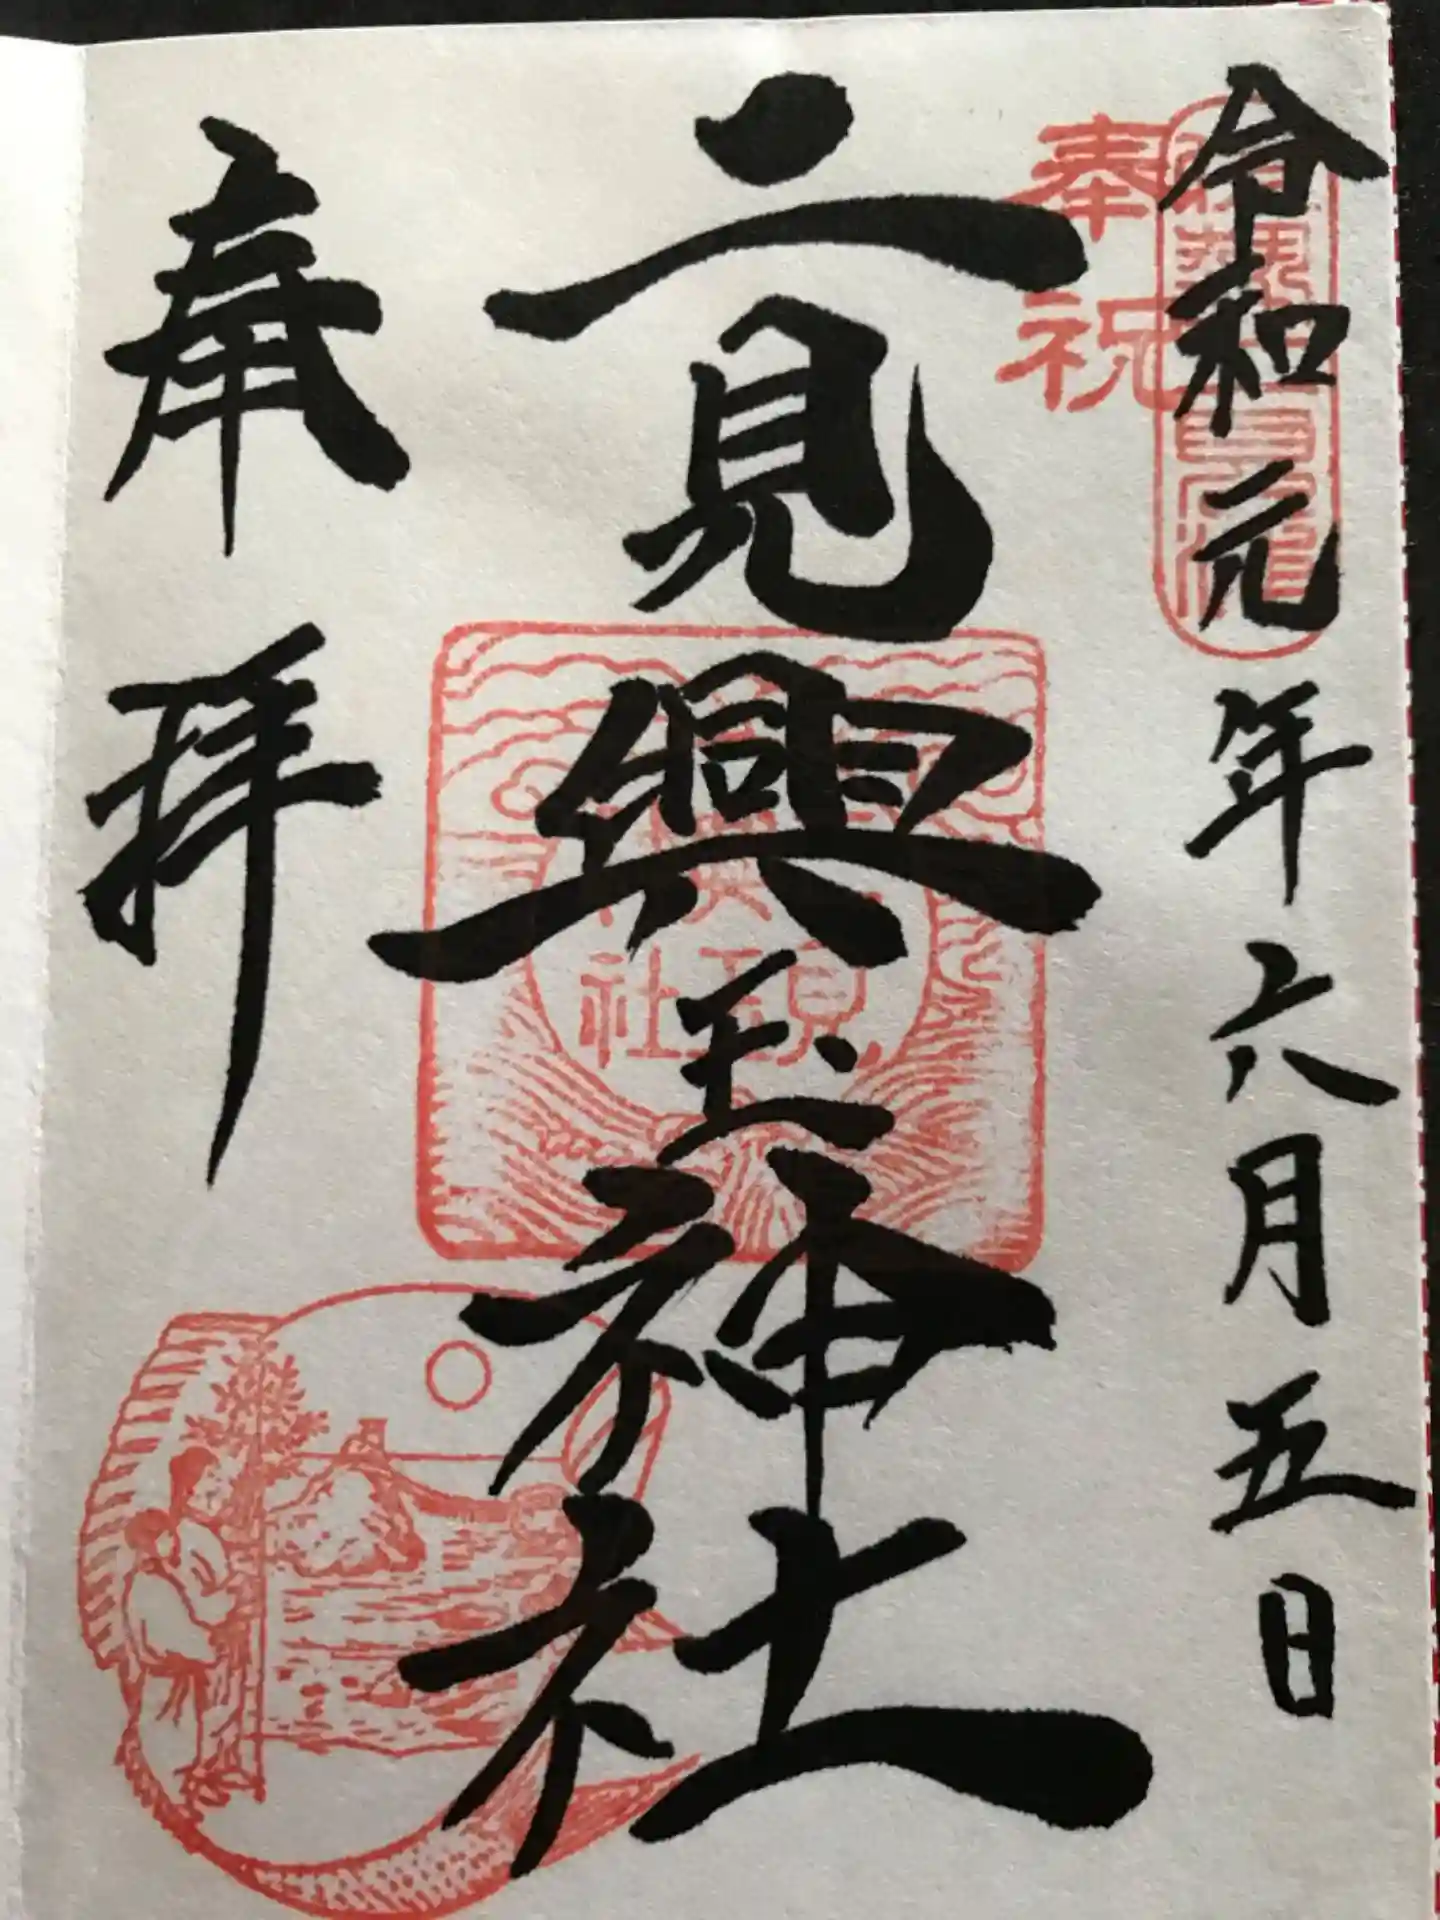 令和元年六月五日
奉祝
二見興玉神社
奉拝